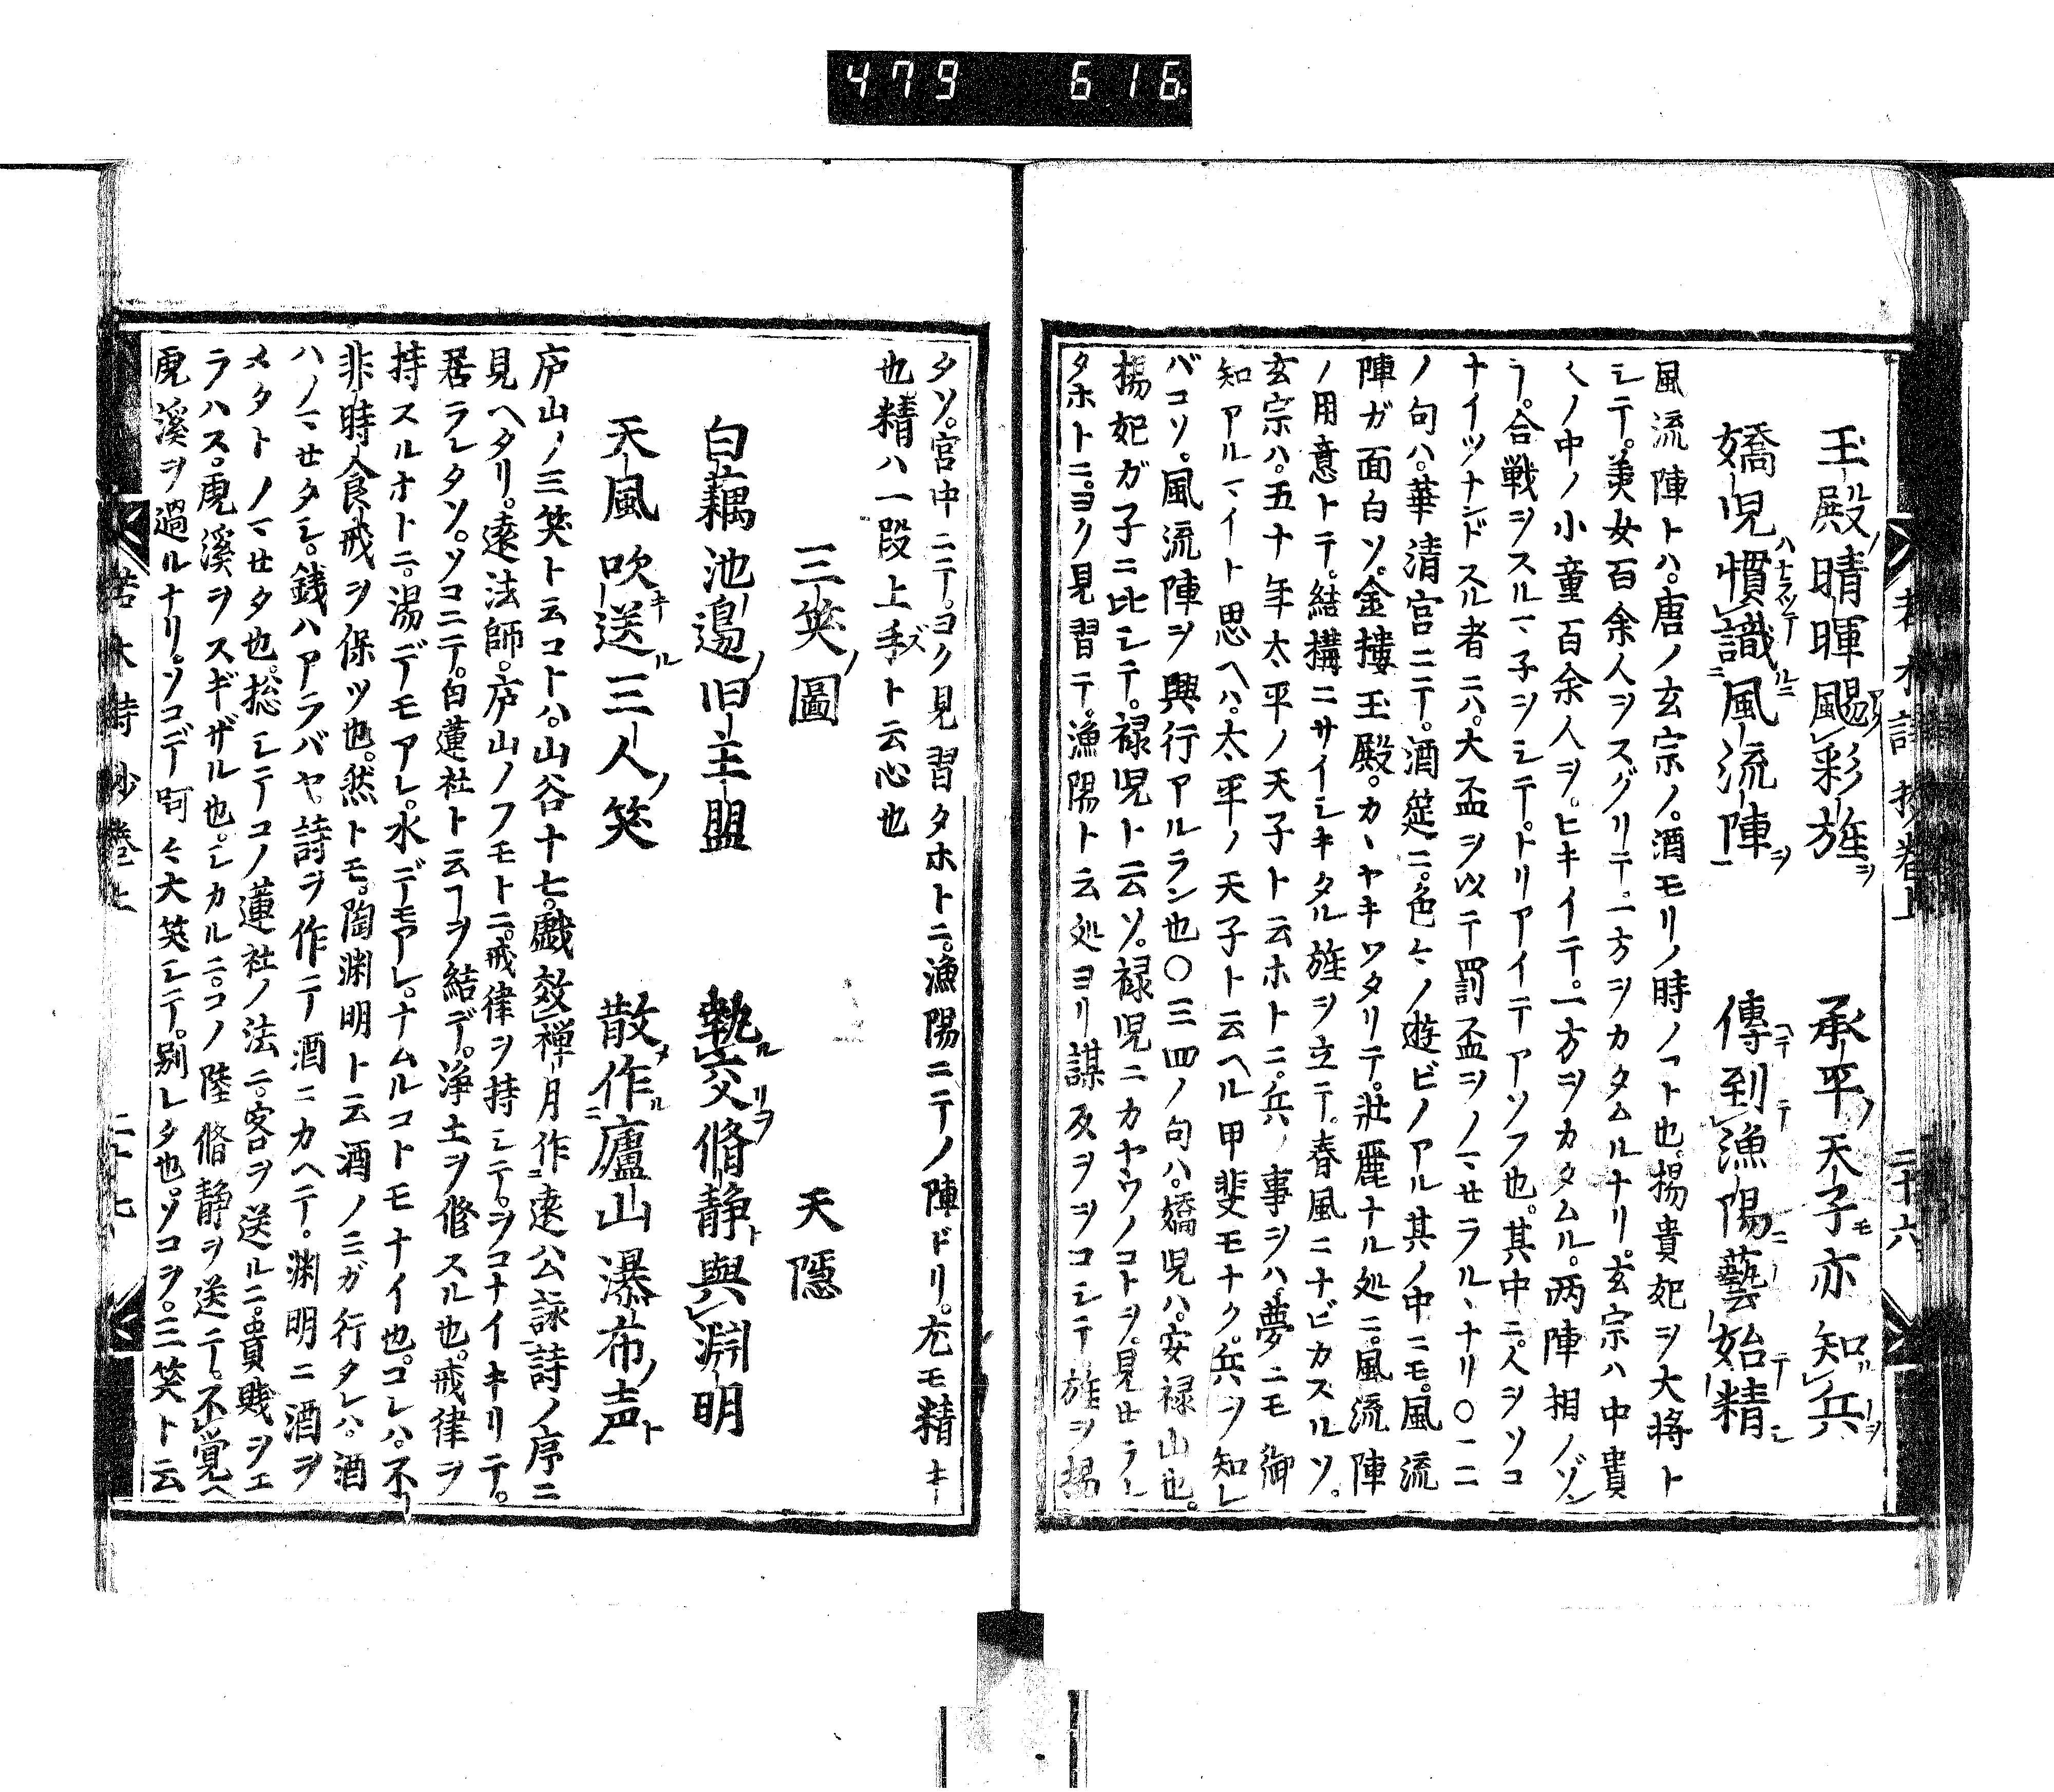 479 616
若木詩抄巻上 二十六
玉殿晴暉颺彩旌 承平天子亦知兵
嬌児慣識風流陣 傳到漁陽藝始精
風流陣トハ。唐ノ玄宗ノ。酒モリノ時ノコト也。揚貴妃ヲ大将ト
シテ。美女百余人ヲスグリテ。一方ヲカタムルナリ。玄宗ハ中貴
〱ノ中ノ小童百余人ヲ。ヒキイテ。一方ヲカタムル。両陣相ノゾン
テ。合戦ヲスルマ子ヲシテ。トリアイテアソフ也。其中ニ。人ヲソコ
ナイツナンドスル者ニハ。大盃ヲ以テ罰盃ヲノマセラルヽナリ〇一二
ノ句ハ。華清宮ニテ。酒筵ニ。色〻ノ遊ビノアル其ノ中ニモ。風流
陣ガ面白ソ。金楼玉殿。カヽヤキワタリテ。壮麗ナル処ニ。風流陣
ノ用意トテ。結構ニサイシキタル旌ヲ立テ。春風ニナビカスルソ。
玄宗ハ。五十年太平ノ天子ト云ホトニ。兵ノ事ヲハ。夢ニモ御
知アルマイト思ヘハ。太平ノ天子ト云ヘル甲斐モナク。兵ヲ知レ
バコソ。風流陣ヲ興行アルラン也〇三四ノ句ハ。嬌児ハ。安禄山也。
揚妃ガ子ニ比シテ。禄児ト云ソ。禄児ニカヤウノコトヲ。見セラレ
タホトニ。ヨク見習テ。漁陽ト云処ヨリ謀反ヲヲコシテ旌ヲ揚
タソ。宮中ニテ。ヨク見習タホトニ。漁陽ニテノ陣ドリ。尤モ精キ
也精ハ一段上手ズト云心也
三笑ノ圖 天隠
白藕池邉旧主盟 執交脩静與淵明
天風吹送三人笑 散作廬山瀑布声
庐山ノ三笑ト云コトハ。山谷十七。戯效禅月作遠公詠詩ノ序ニ
見ヘタリ。遠法師。庐山ノフモトニ。戒律ヲ持シテ。ヲコナイキリテ。
居ラレタソ。ソコニテ。白蓮社ト云フヲ結デ。浄土ヲ修スル也。戒律ヲ
持スルホトニ。湯デモアレ。水デモアレ。ナムルコトモナイ也。コレハ。不
非時食戒ヲ保ツ也。然トモ。陶渊明ト云酒ノミガ行タレハ。酒
ハノマセタシ。銭ハアラバヤ。詩ヲ作テ酒ニカヘテ。渊明ニ酒ヲ
メタトノマセタ也。惣シテコノ蓮社ノ法ニ。客ヲ送ルニ。貴賎ヲエ
ラハス。虎溪ヲスギザル也。シカルニ。コノ陸脩静ヲ送テ。不覚
虎溪ヲ過ルナリ。ソコデ呵〻大笑シテ。別レタ也。ソコヲ。三笑ト云
若木詩抄巻上 二十七